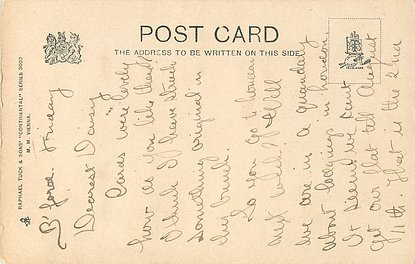 POST CARD
THE ADDRESS TO BE WRITTEN ON THIS SIDE
RAPHAEL TUCK & SONS' "CONTINENTAL" SERIES 5003
M. M. VIENNE.
B'ford. Friday
Dearest Daisy
Cards were lovely
how do you like these?
I think I have struck
something original in
this bunch.
So you go to
next week? Well
we are in a quandary
about lodgings in London.
It seems we cant
get our flat till August
11th. That is the 2nd